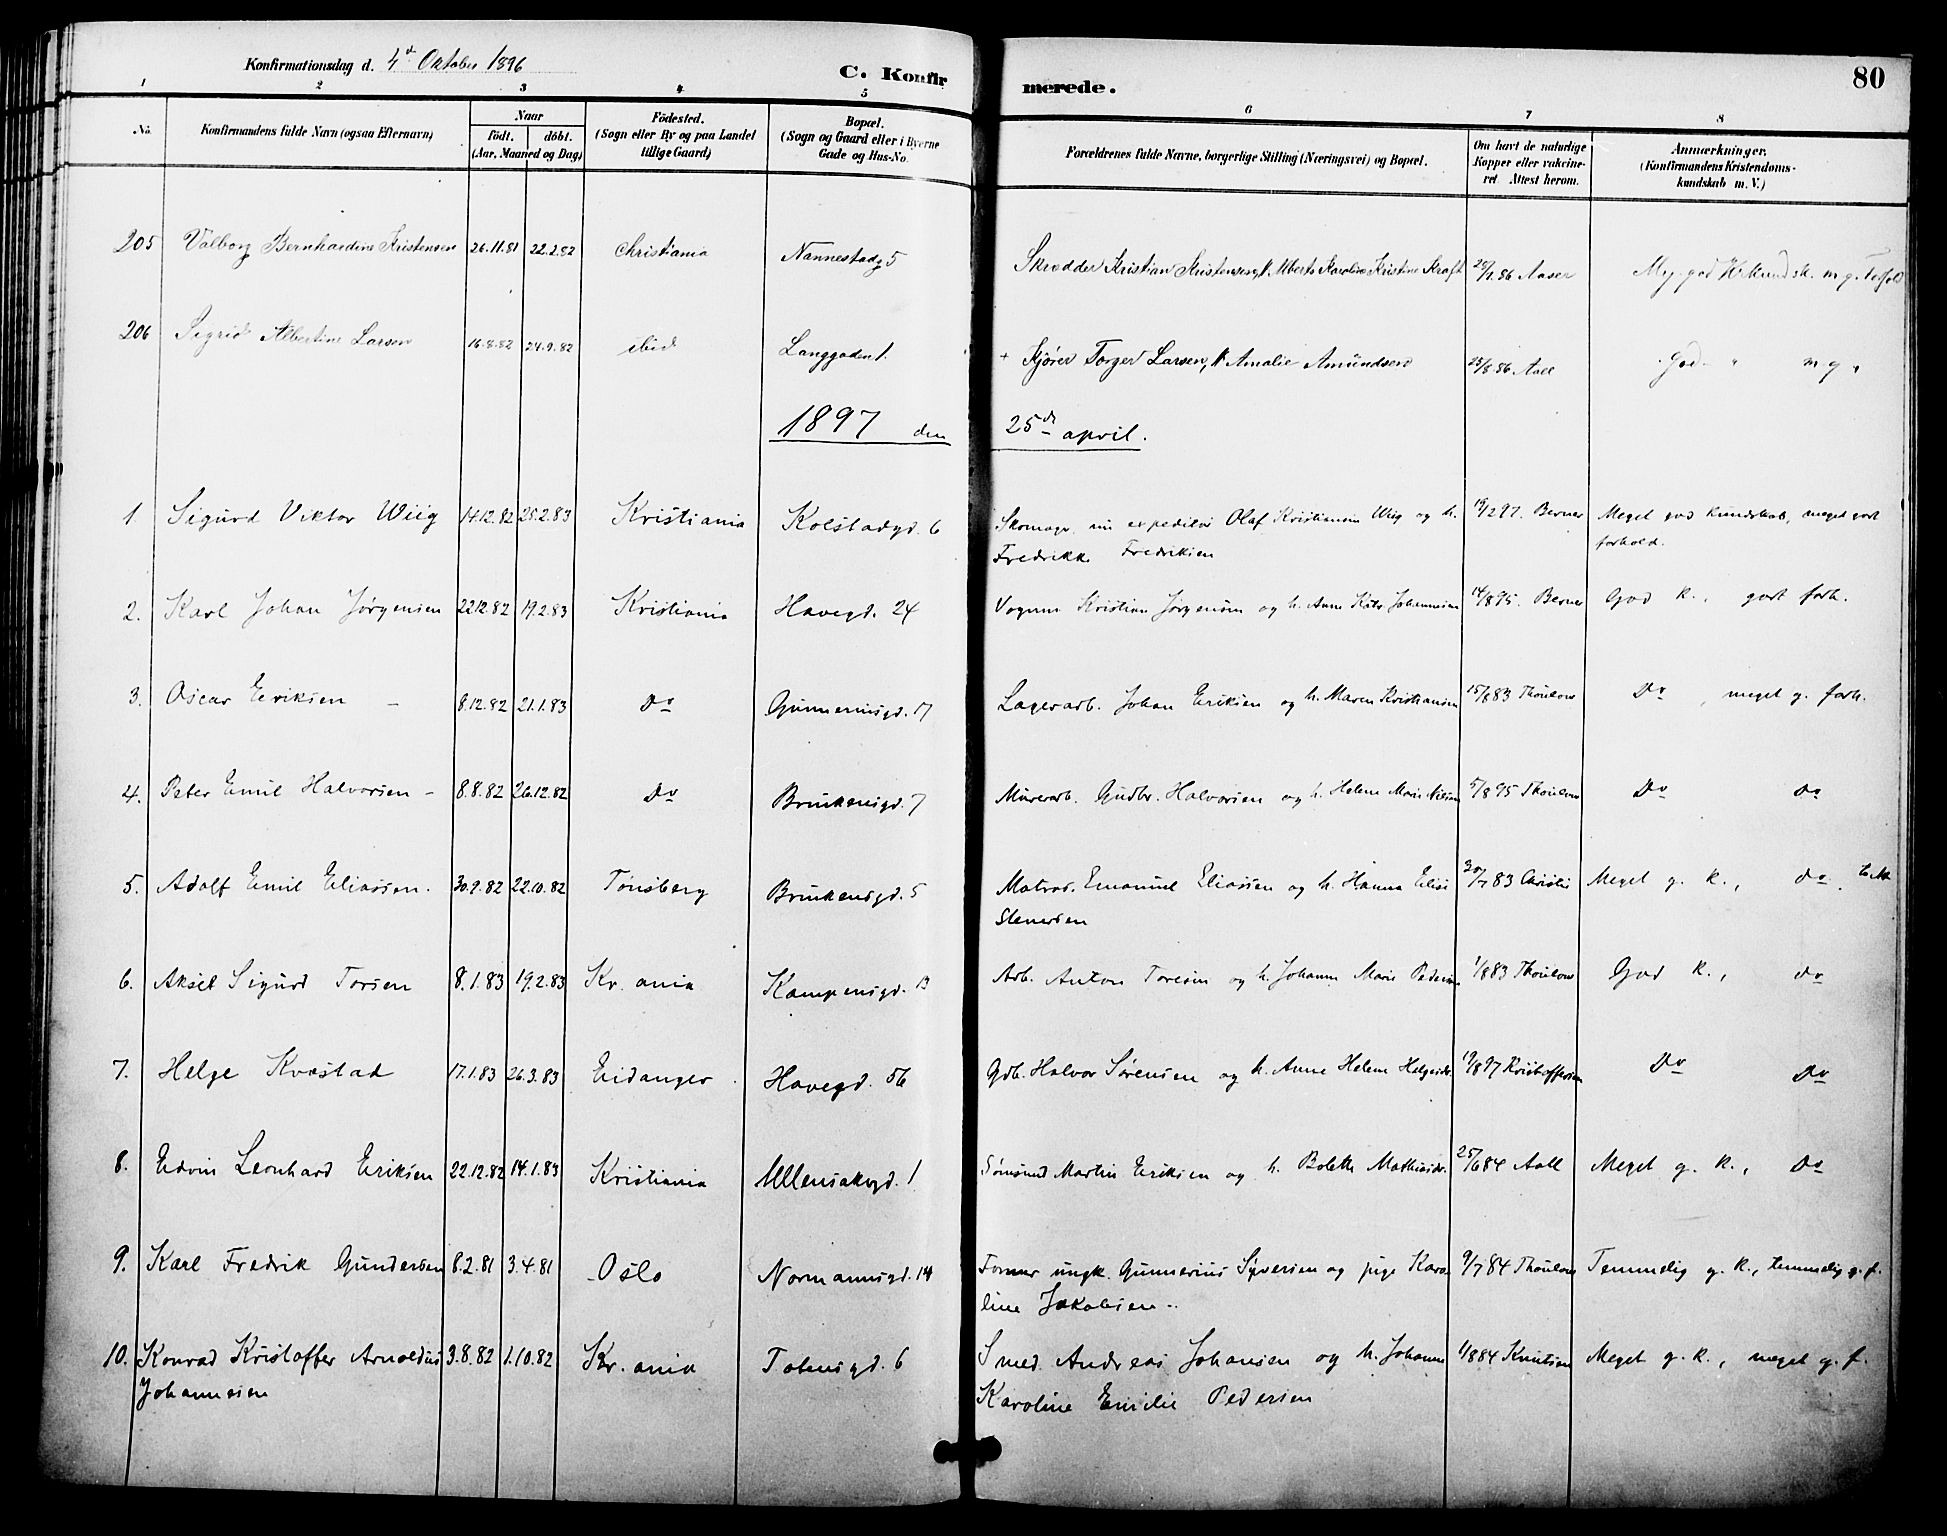 Konfirmationsdag d. 4d Oktober 1896
C. Konfirmerede. 80
1 2 3 4 5 6 7 8
No. Konfirmandens fulde Navn (ogsaa Efternavn) Naar födt. döbt. (Aar, Maaned og Dag) Födested. (Sogn eller By og paa Landet tillige Gaard) Bopæl. (Sogn og Gaard eller i Byerne Gade og Hus-No. Forældrenes fulde Navne, borgerlige Stilling (Næringsvei) og Bopæl. Om havt de naturlige Kopper eller vakcineret. Attest herom. Anmærkninger. (Konfirmandens Kristendomskundskab m. V.)
205 Valborg Bernhardine Kristensen 26.11.81 22.2.82 Christiania Nannestadg 5 Skrædder Kristian Kristensen, Alberte Karoline Kristine Kraft Aaser Mg. god K. Kundsk. m g. Forhold
206 Sigrid Albertine Larsen 16.8.82 24.9.82 ibid Langgaden 1. + Kjører Torger Larsen, Amalie Amundsen 25/8.86 Aall God " m g "
1897 den 25de april.
1. Sigurd Viktor Wiig 14.12.82 25.2.83 Kristiania Kolstadgd. 6 Skomagr. nu expeditør Olaf Kristiansen Wiig og h. 19/2 97. Berner Meget god kundskab, meget godt
Fredrikke Fredriksen forhold.
2. Karl Johan Jørgensen 22.12.82 19.2.83 Kristiania Havegd. 24 Vognm Kristian Jørgensen og h. Anne Katr. Johannesen 14/8 95. Berner God k., godt forh.
3. Oscar Eriksen – 8.12.82 21.1.83 Do Gunnerusgd. 17 Lagerarb. Johan Eriksen og h. Maren Kristiansen 15/8 83 Thoulow Do , meget g. forh.
4. Peter Emil Halvorsen – 8.8.82 26.12.82 Do Brinkensgd. 7 Murerarb. Gudbr. Halvorsen og h. Helene Marie Nilsen 5/8 95 Thoulow Do Do
5. Adolf Emil Eliassen. 30.9.82 22.10.82 Tønsberg Brinkensgd. 5 Matros. Emanuel Eliassen og h. Hanna Elise 30/7 83 Christie Meget g. k., do.
Stenersen
6. Aksel Sigurd Torsen 8.1.83 19.2.83 Kr. ania Kampensgd. 13 Arb. Anton Toresen og h. Johanne Marie Pedersen 1/8 83 Thoulow God k., do
7. Helge Kvestad 17.1.83 26.3.83 Eidanger. Havegd. 56 Gdb. Halvor Sørensen og h. Anne Helene Helgesdr. 19/8 97 Kristoffersen Do Do
8. Edvin Leonhard Eriksen 22.12.82 14.1.83 Kristiania Ullensakergd. 1 Sømand Martin Eriksen og h. Bolette Mathisdr. 25/6 84 Aall Meget g. k., Do
9. Karl Fredrik Gundersen 8.2.81 3.4.81 Oslo Normannsgd. 14 Former ungk. Gunnerius Syversen og pige Karo 9/7 84 Thoulow Temmelig g. k., temmelig g. f.
line Jakobsen –
10. Konrad Kristoffer Arnoldus 3.8.82 1.10.82 Kr. ania Totensgd. 6 Smed Andreas Johansen og h. Johanne 1/8 84 Knutsen Meget g. k., meget g. f.
Johannesen Karoline Emilie Pedersen